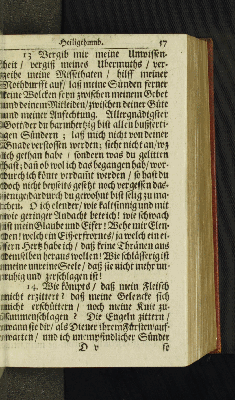 Heiligthumb. 57
13 Vergib mir meine Unwissen-
heit / vergiß meines Ubermuths / ver-
zeihe meine Missethaten / hilff meiner
Nothdurfft auf / laß meine Sünden ferner
keine Wolcken seyn zwischen meinem Gebet
und deinem Mitleiden / zwischen deiner Güte
und meiner Anfechtung. Allergnädigster
Gott / der du barmhertzig bist allen bußferti-
gen Sündern ; laß mich nicht von deiner
Gnade verstossen werden; siehe nicht an / was
ich gethan habe / sondern was du gelitten
hast; dañ ob wol ich das begangen hab / wor-
durch ich könte verdamt werden / so hast du
doch nicht beyseits gesetzt noch vergessen das-
jenige dardurch du gewohnt bist selig zu ma-
chen. O ich elender / wie kaltsinnig und mit
wie geringer Andacht bete ich! wie schwach
ist mein Glaube und Eifer! Wehe mir Elen-
den! welch ein Eiß erfrornes / ja welch ein ei-
sern Hertz habe ich / daß keine Thränen aus
demselben heraus wollen! Wie schläfferig ist
meine unreine Seele / daß sie nicht mehr un-
ruhig und zerschlagen ist!
14. Wie kömpts / daß mein Fleisch
nicht erzittert? daß meine Gelencke sich
nicht erschüttern / noch meine Knie zu-
sammenschlagen? Die Engeln zittern /
wann sie dir / als Diener ihrem Fürsten auf-
warten / und ich unempfindlicher Sünder
D v se